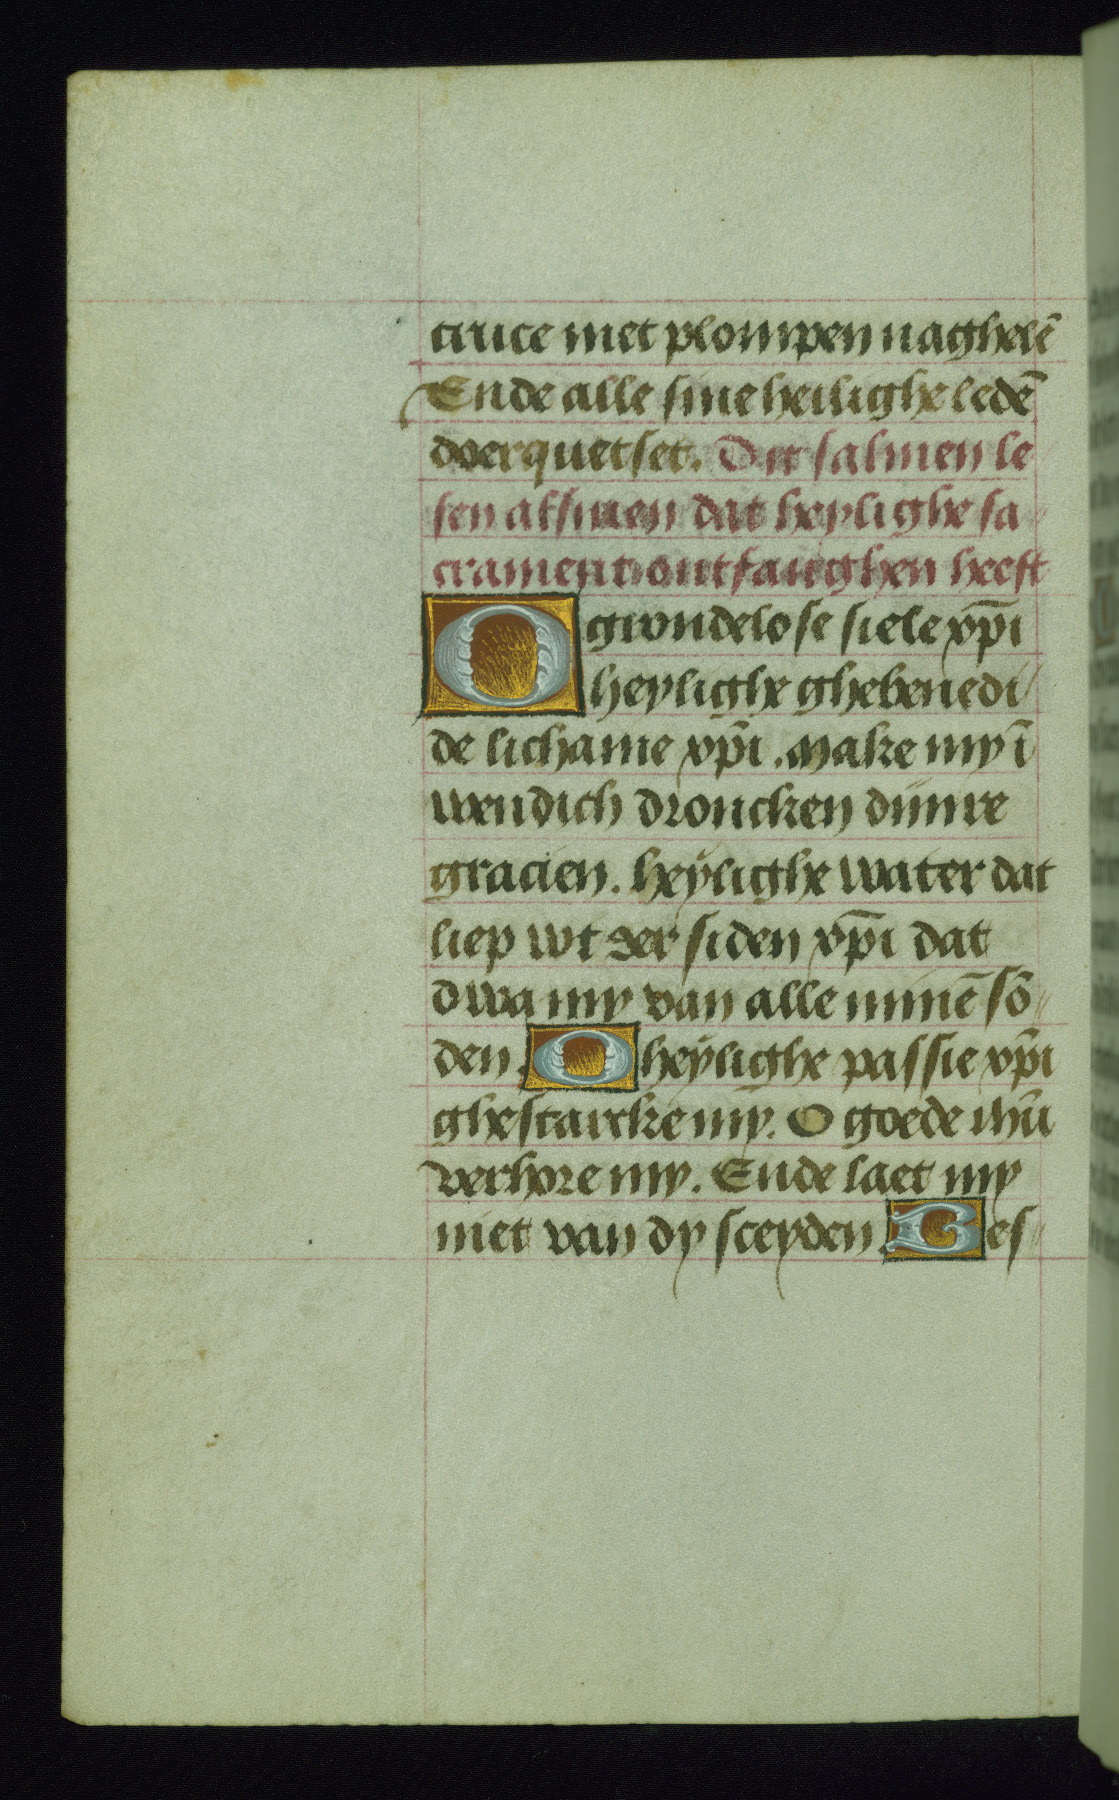 cruce met plompen naghelē
Ende alle sine heilighe ledē
doerquetset. Dit salmen le
sen alsmen dat heylighe sa
crament ontfanghen heeft
O grondelose siele xp̄i
heylighe ghebenedi
de lichame xp̄i. Make my ī
wendich droncken dijnre
gracien. heÿlighe water dat
liep wt der siden xp̄i dat
dwa my van alle minē sō
den. O heÿlighe passie xp̄i
ghestarcke my. O goede ihū
verhore my. Ende laet my
niet van dy sceyden. Bes